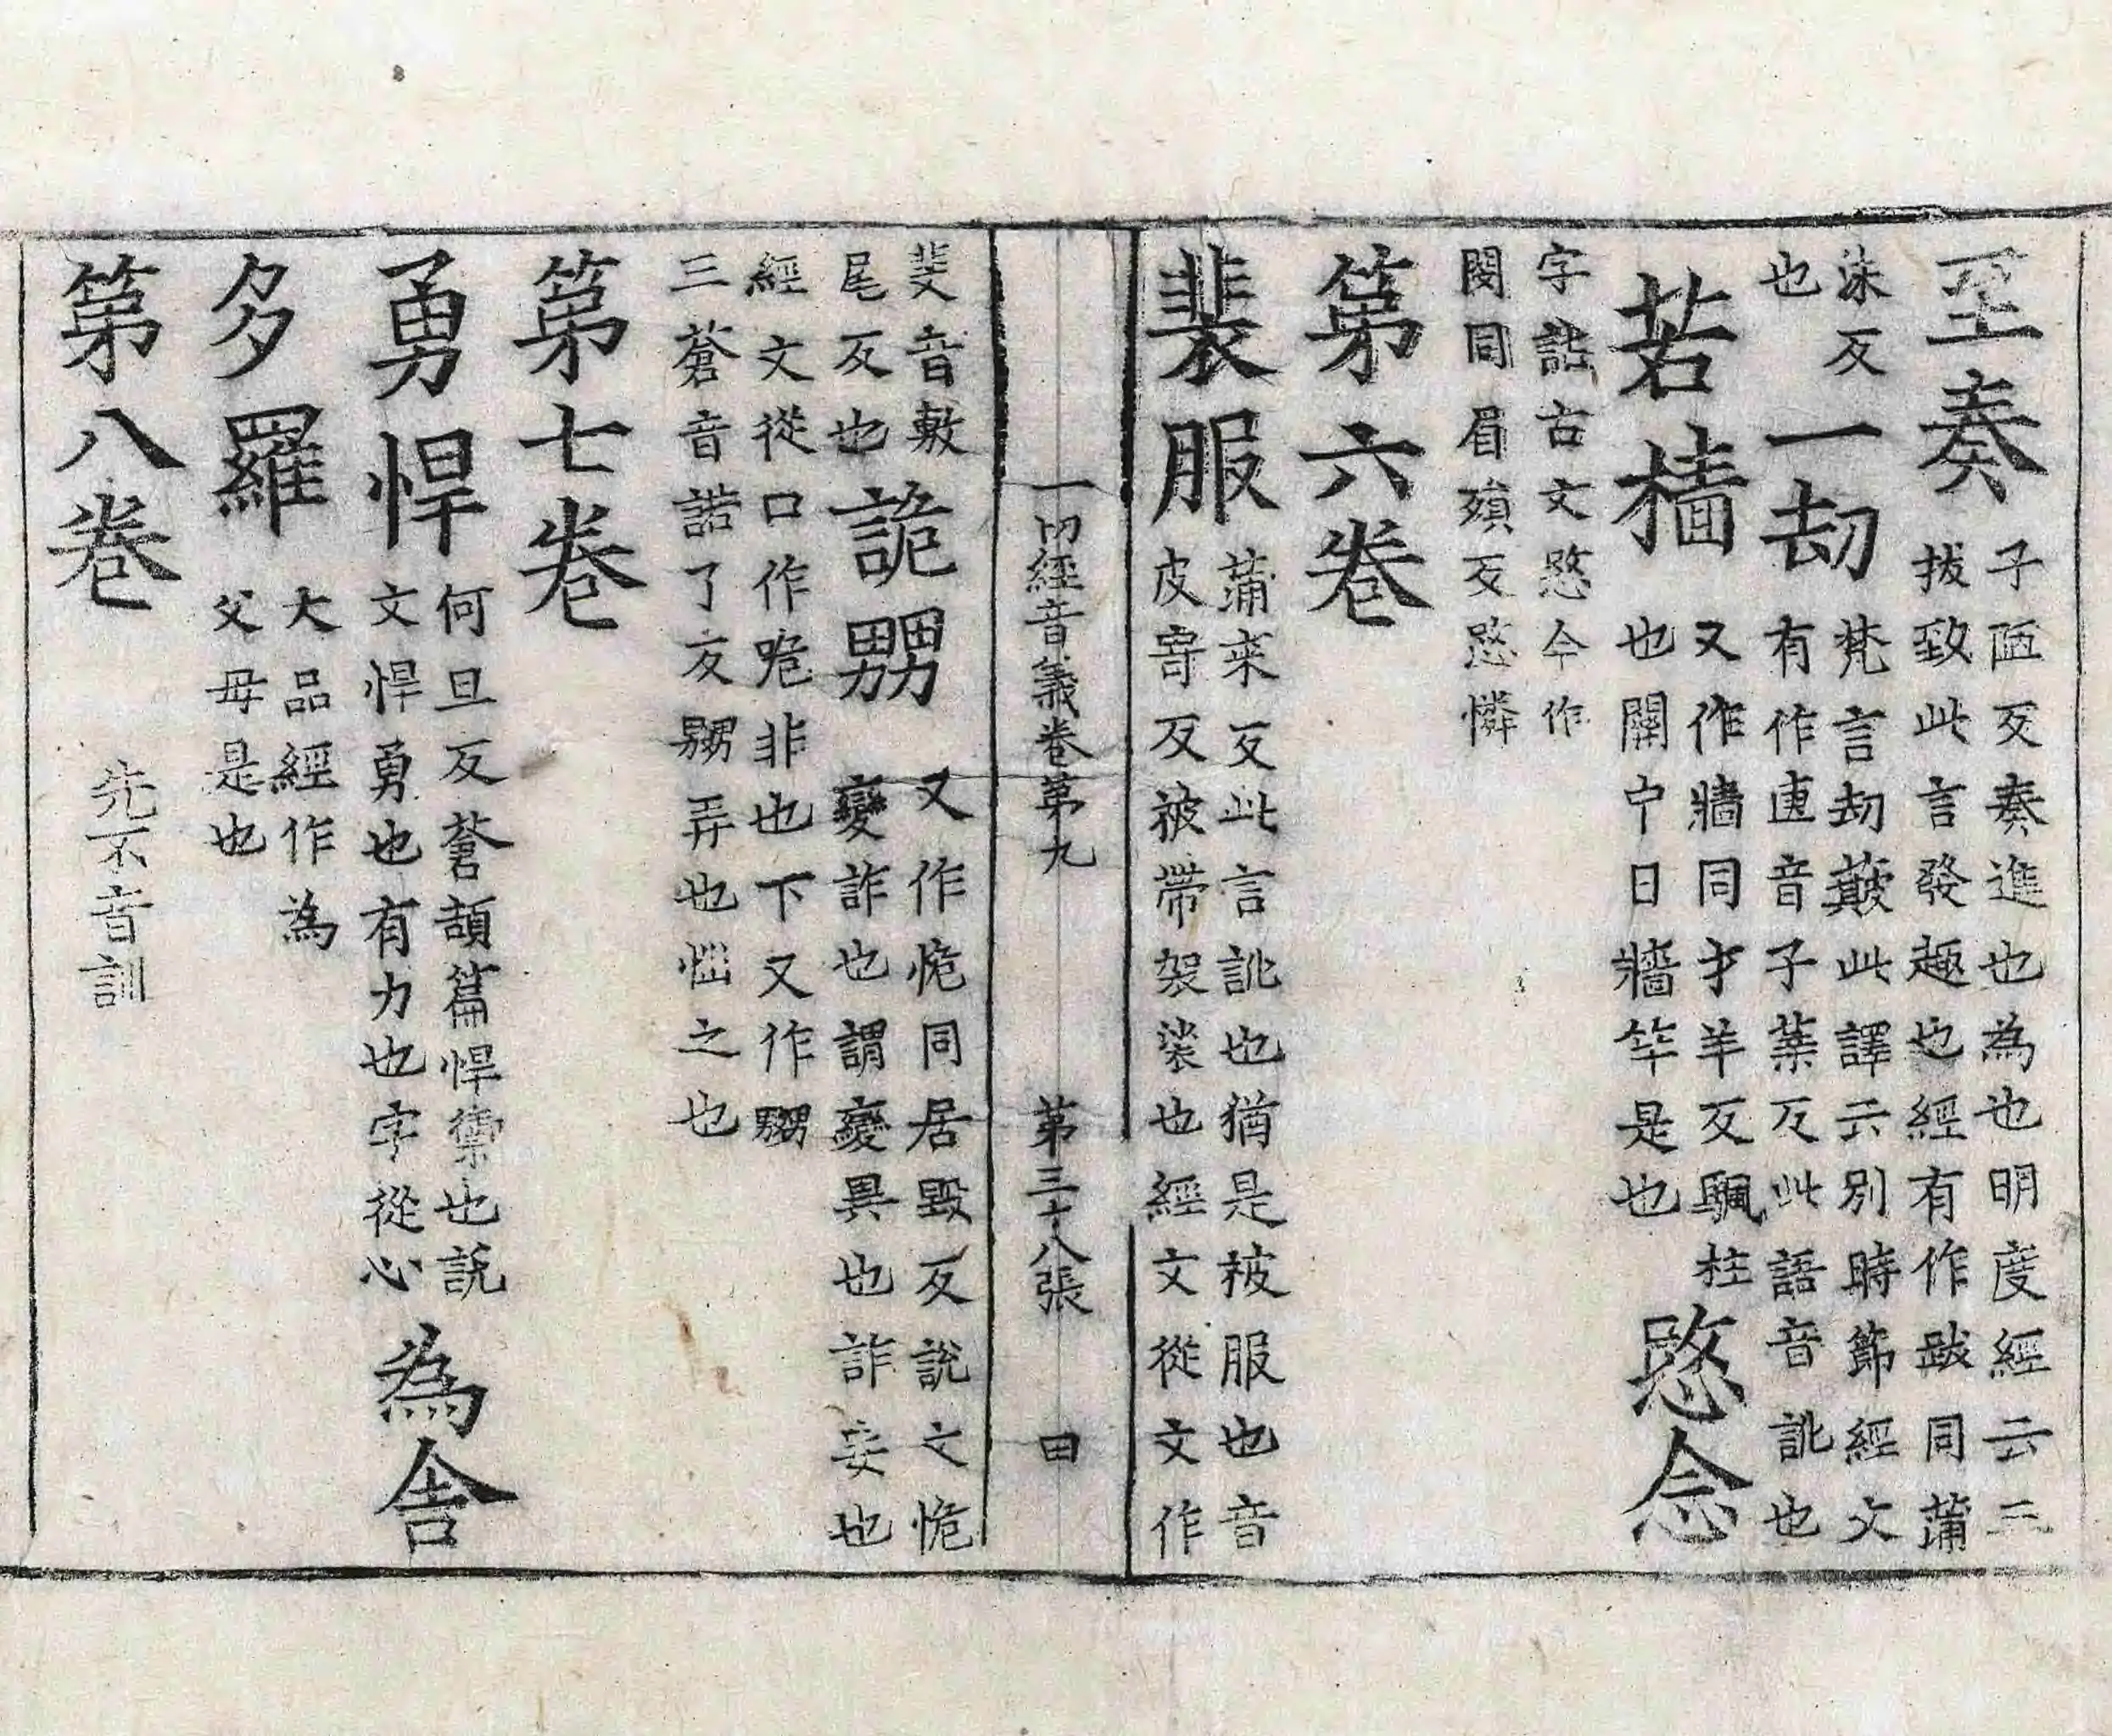 至奏子陋反奏進也為也明度經云三
拔致此言發趣也經有作跋同蒲
沫反
也
一劫梵言劫簸此譯云別時節經文
有作𠥾音子葉反此語音訛也
若檣又作牆同才羊反颿柱
也關中曰牆竿是也
愍念
字詁古文愍今作
閔同眉殞反愍憐
第六卷
裴服蒲來反此言訛也猶是被服也音
皮寄反被帶袈裟也經文從文作
一切經音義卷第九 第三十八張 田
斐音敷
尾反也
詭嬲又作恑同居毀反說文恑
變詐也謂變異也詐妄也
經文從口作咃非也下又作嬲
三蒼音諾了反嬲弄也惱之也
第七卷
勇悍何旦反蒼頡篇悍禦也說
文悍勇也有力也字從心
為舍
多羅大品經作為
父母是也
第八卷 先不音訓